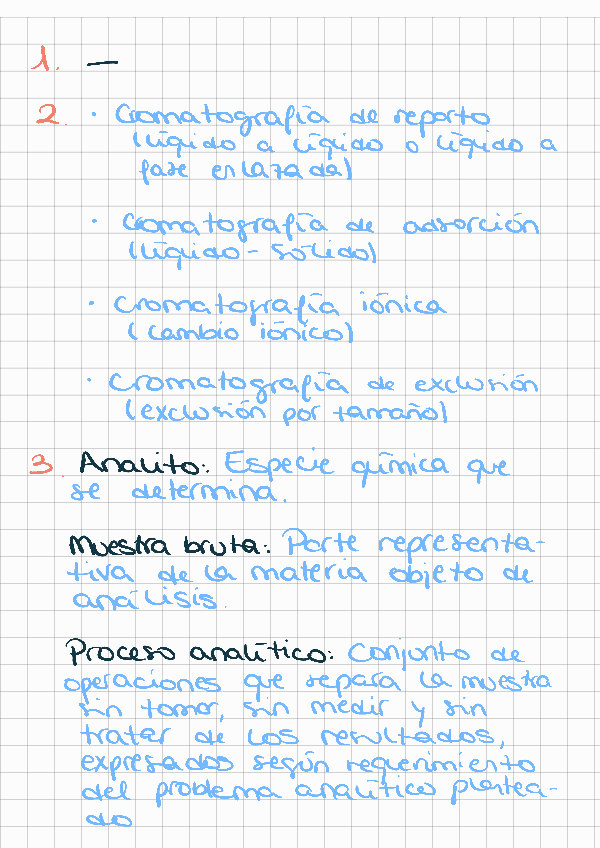 1. —
2. · Cromatografía de reparto
(líquido a líquido o líquido a
fase enlazada)
· Cromatografía de adsorción
(líquido - sólido)
· Cromatografía iónica
(cambio iónico)
· Cromatografía de exclusión
(exclusión por tamaño)
3. Analito: Especie química que
se determina.
Muestra bruta: Parte representa-
tiva de la materia objeto de
análisis.
Proceso analítico: Conjunto de
operaciones que separa la muestra
sin tomar, sin medir y sin
tratar de los resultados,
expresados según requerimiento
del problema analítico plantea-
do